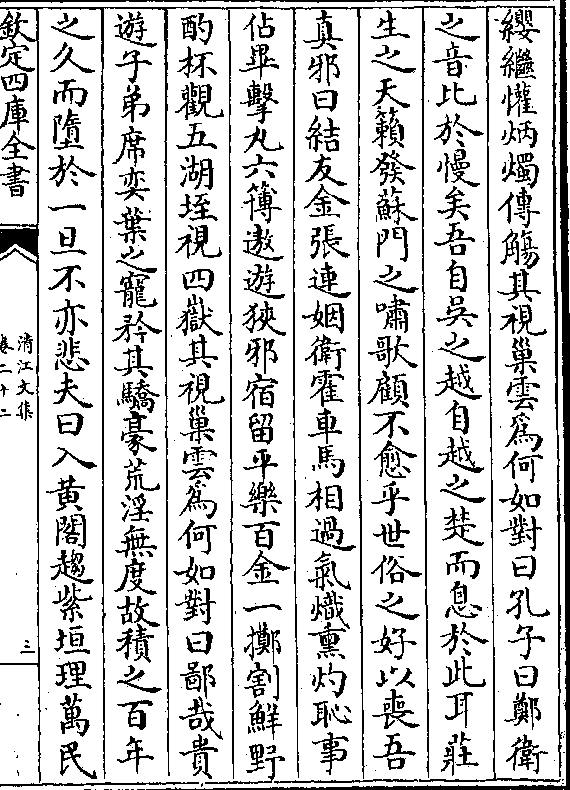 纓繼懽炳燭傳觴其視巢雲爲何如對曰孔子曰鄭衛
之音比於慢矣吾自吳之越自越之楚而息於此耳莊
生之天籟發蘇門之嘯歌顧不愈乎世俗之好以喪吾
真邪曰結友金張連姻衛霍車馬相過氣熾熏灼恥事
佔畢擊丸六簿遨遊狹邪宿留平樂百金一擲割鮮野
酌杯觀五湖垤視四嶽其視巢雲爲何如對曰鄙哉貴
遊子弟席奕葉之寵矜其驕豪荒淫無度故積之百年
之久而墮於一旦不亦悲夫曰入黄閣趨紫垣理萬民
欽定四庫全書
清江文集
卷二十二
三